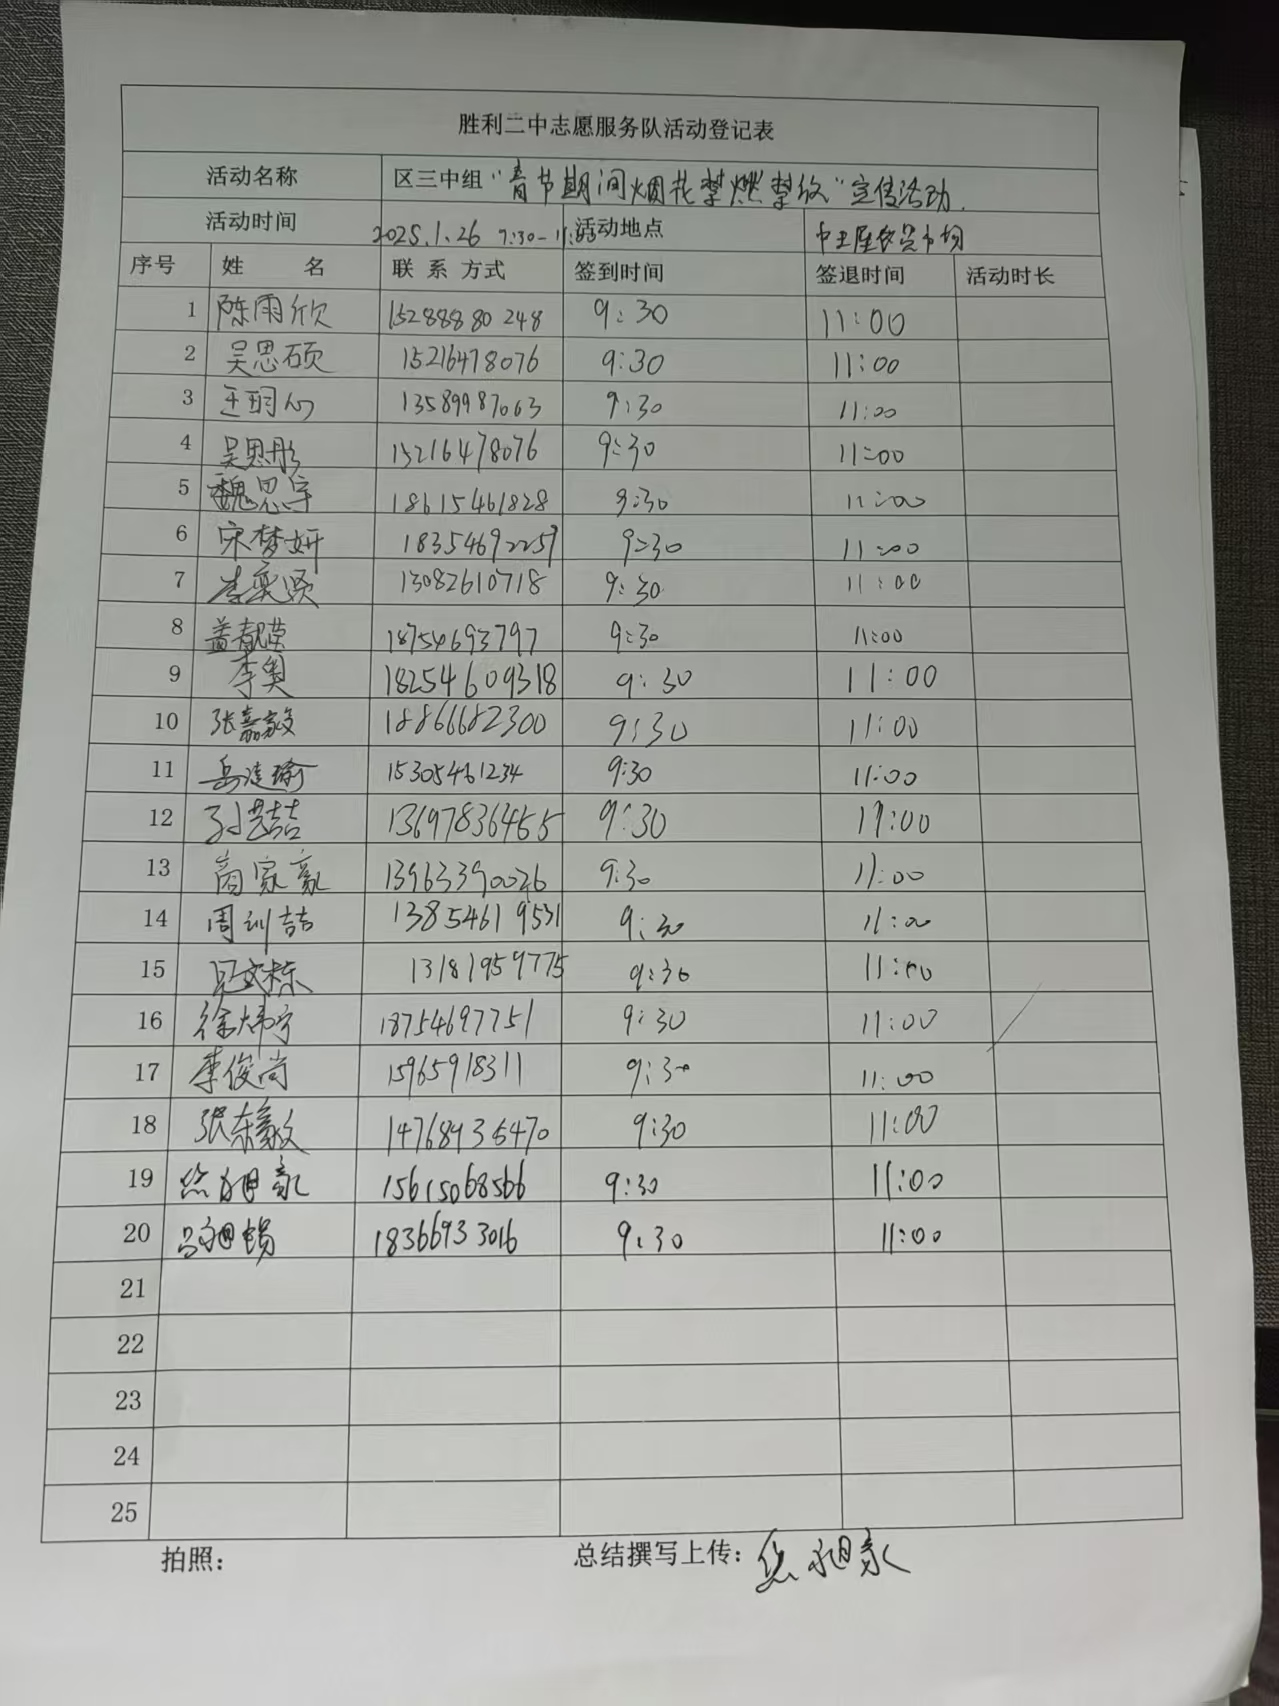 胜利二中志愿服务队活动登记表
活动名称 区三中组“春节期间烟花禁燃禁放”宣传活动.
活动时间 2025.1.26 9:30-11:00 活动地点
序号 姓 名 联系方式 签到时间 签退时间 活动时长
1 陈雨欣 15288880248 9:30 11:00
2 吴思硕 15216478076 9:30 11:00
3 王玥心 13589987063 9:30 11:00
4 吴思彤 15216478076 9:30 11:00
5 魏思宇 18615461828 9:30 11:00
6 宋梦妍 18354692259 9:30 11:00
7 李奕贤 13082610718 9:30 11:00
8 盖靓莹 18754693797 9:30 11:00
9 李奥 18254609318 9:30 11:00
10 张嘉毅 18866682300 9:30 11:00
11 15305461234 9:30 11:00
12 孙艺喆 13697836455 9:30 11:00
13 商家豪 13963390026 9:30 11:00
14 周训喆 13854619531 9:30 11:00
15 13181959775 9:30 11:00
16 徐炜宁 18754697751 9:30 11:00
17 李俊尚 15965918311 9:30 11:00
18 张东毅 14768935470 9:30 11:00
19 15615068566 9:30 11:00
20 18366933016 9:30 11:00
21
22
23
24
25
拍照: 总结撰写上传: